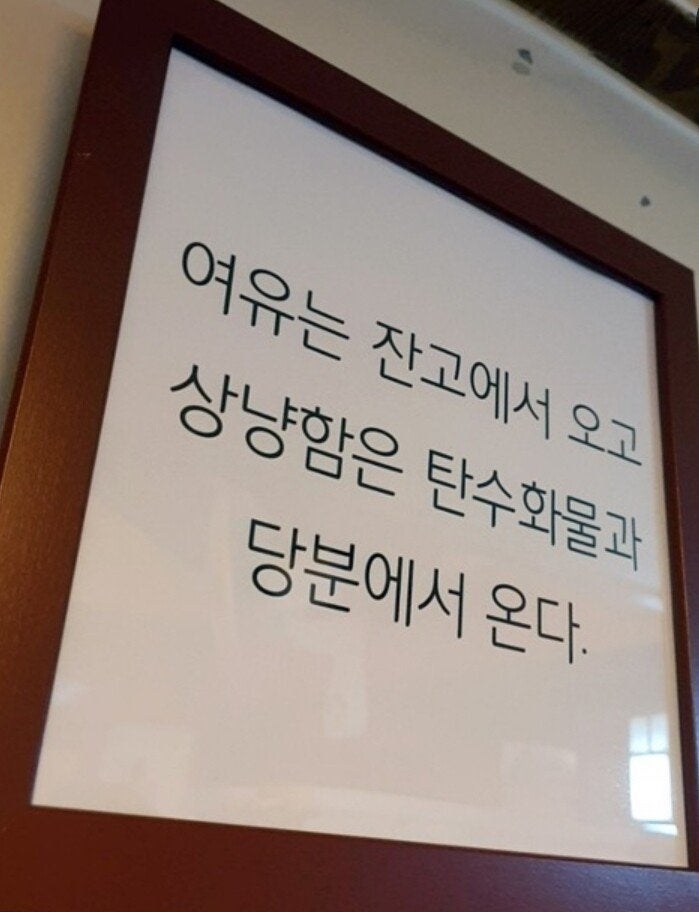 여유는 잔고에서 오고
상냥함은 탄수화물과
당분에서 온다.